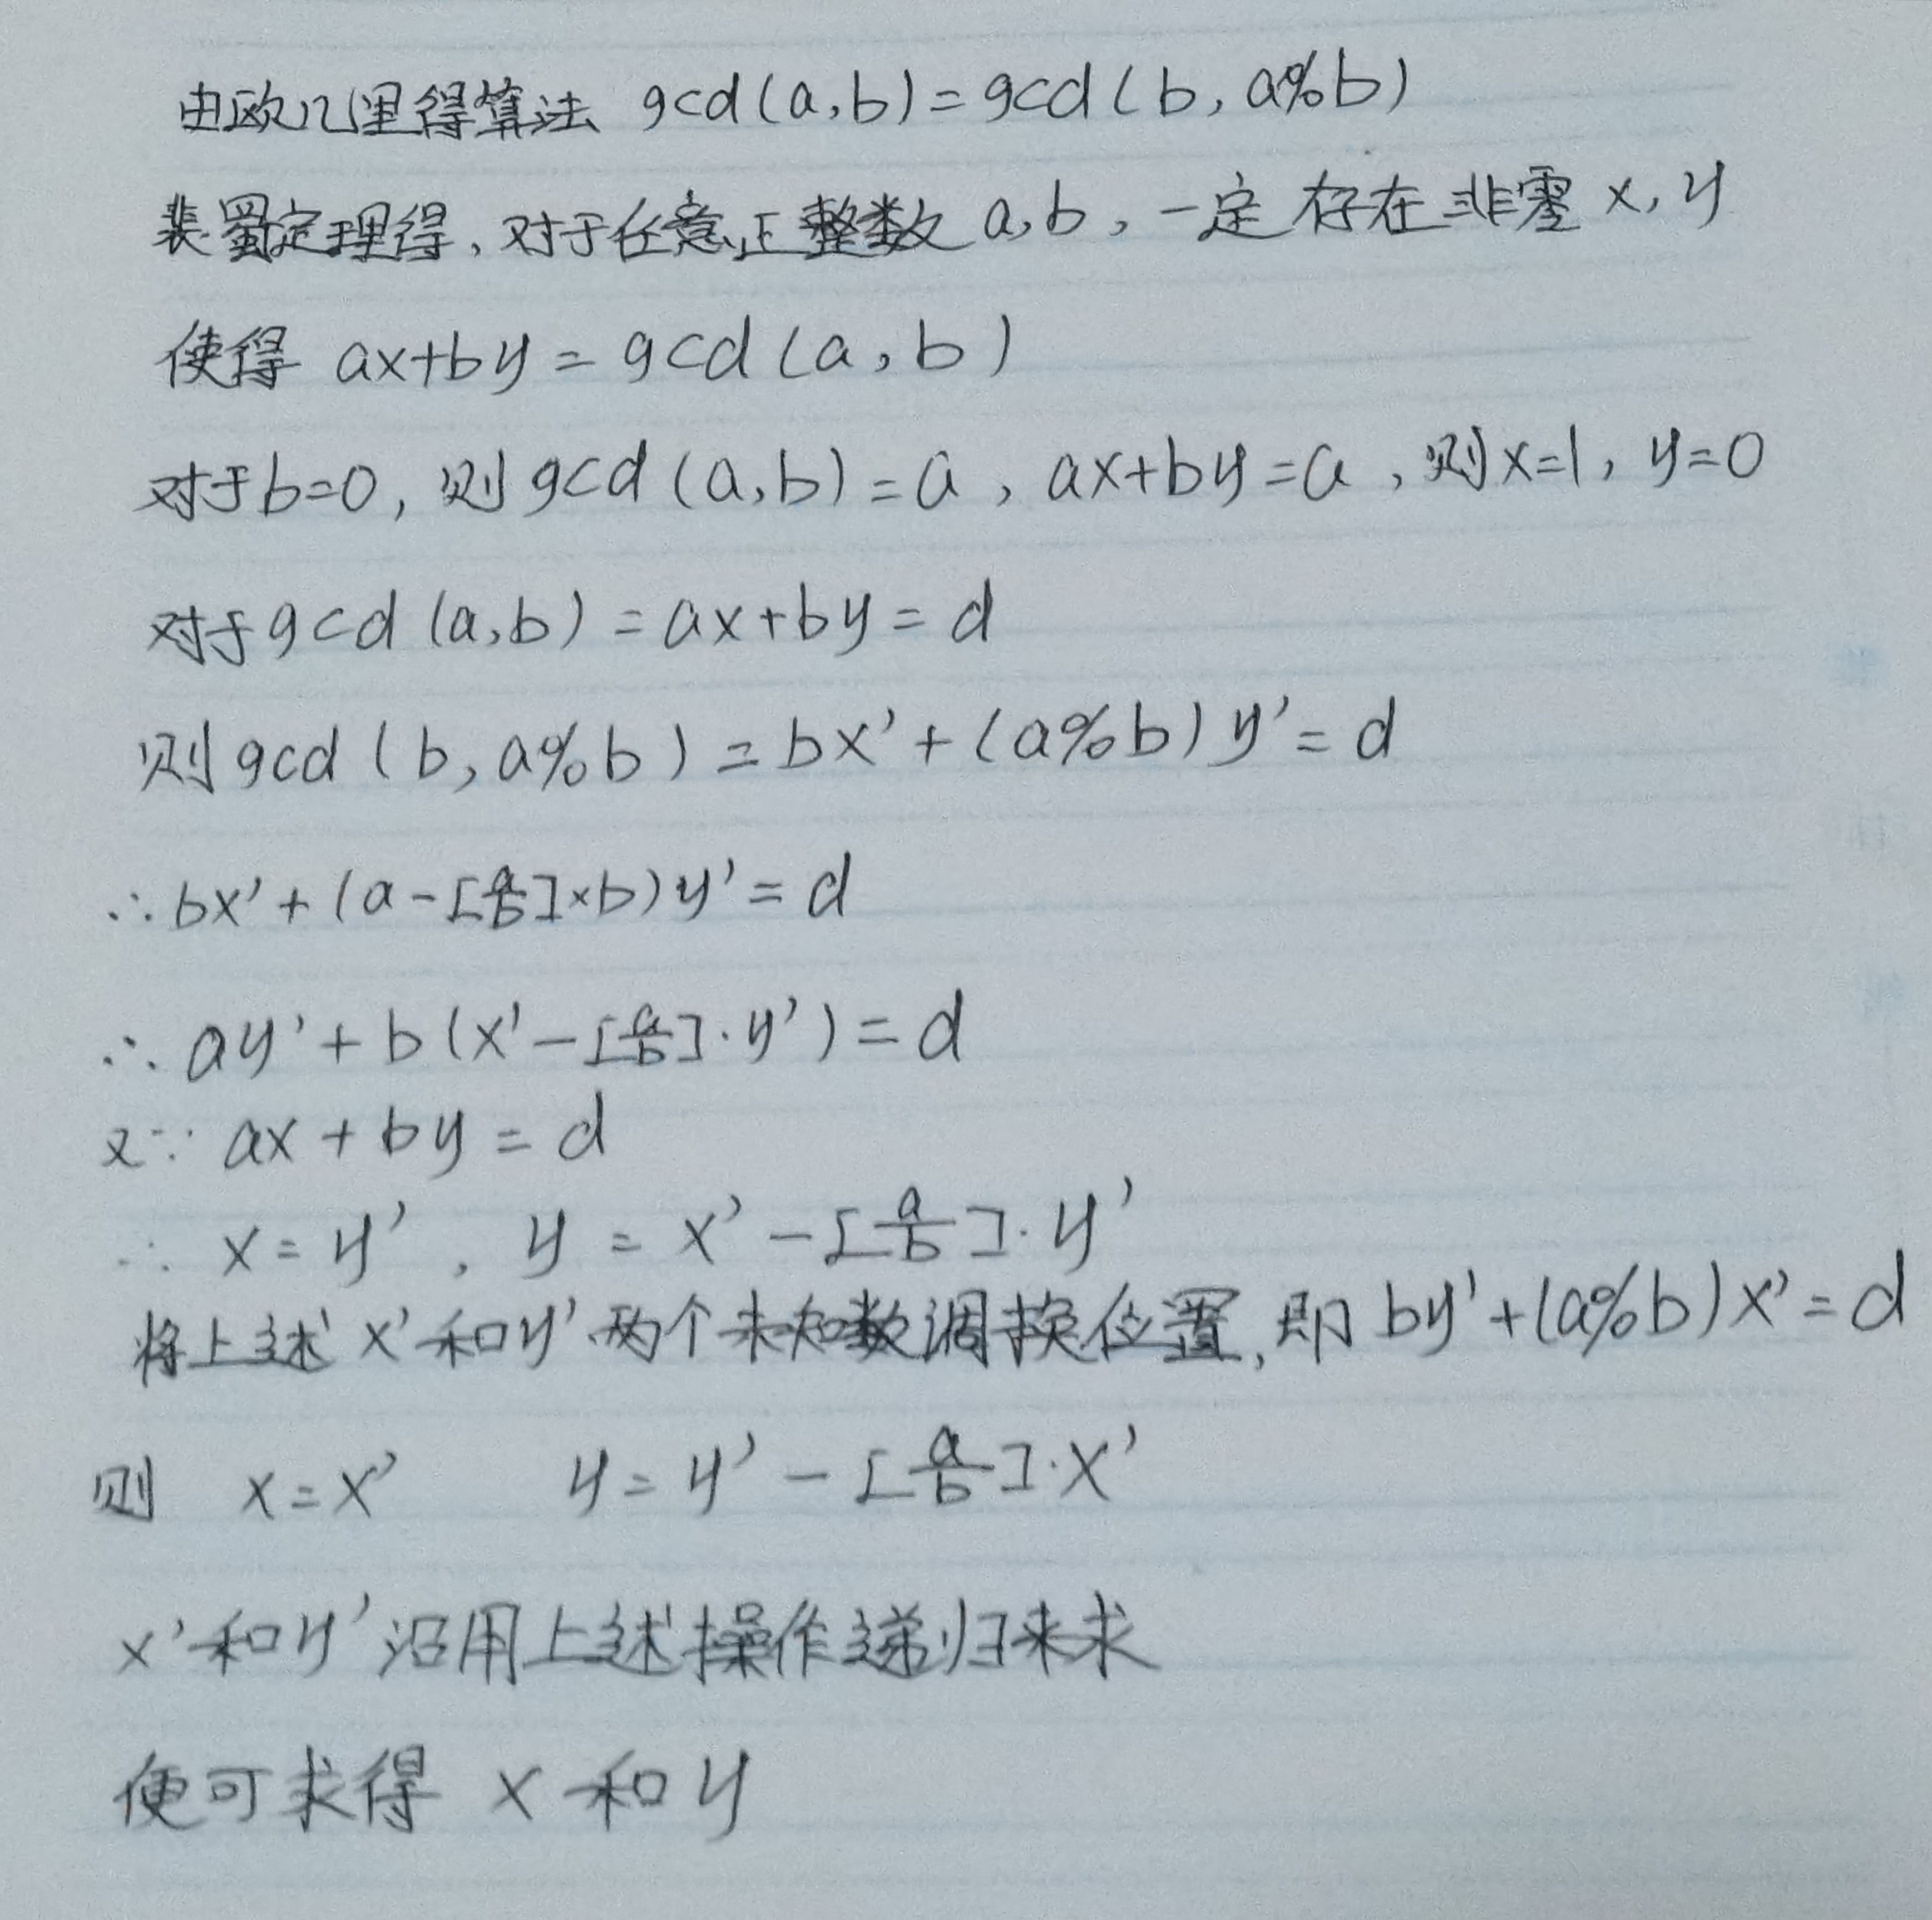 由欧几里得算法 gcd(a,b)=gcd(b,a%b)
裴蜀定理得,对于任意正整数a,b,一定存在非零x,y
使得 ax+by=gcd(a,b)
对于b=0,则gcd(a,b)=a,ax+by=a,则x=1,y=0
对于gcd(a,b)=ax+by=d
则gcd(b,a%b)=bx'+(a%b)y'=d
∴bx'+(a-[a/b]×b)y'=d
∴ay'+b(x'-[a/b]·y')=d
又∵ax+by=d
∴x=y',y=x'-[a/b]·y'
将上述x'和y'两个未知数调换位置,即by'+(a%b)x'=d
则 x=x' y=y'-[a/b]·x'
x'和y'沿用上述操作递归来求
便可求得 x和y